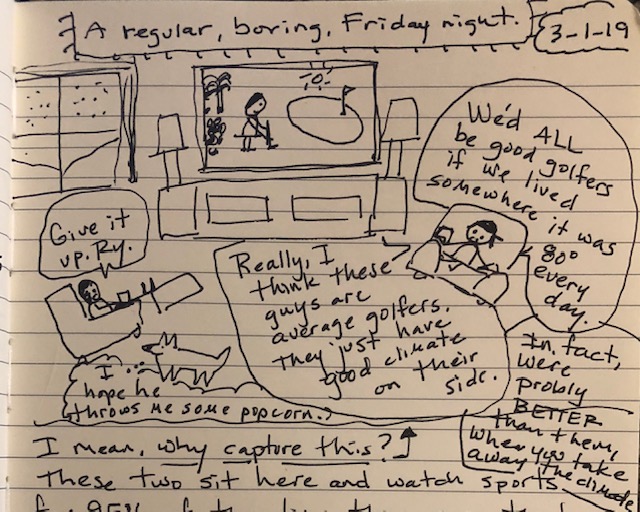 A regular, boring, Friday night.
3-1-19
We'd ALL
be good golfers
if we lived
somewhere it was
80°
every
day.
Give it
up, Ry.
Really, I
think these
guys are
average golfers.
They just have
good climate
on their
side.
In fact,
we're
probly
BETTER
than them,
when you take
away the climate
I
hope he
throws me some popcorn.
I mean, why capture this?
These two sit here and watch sports